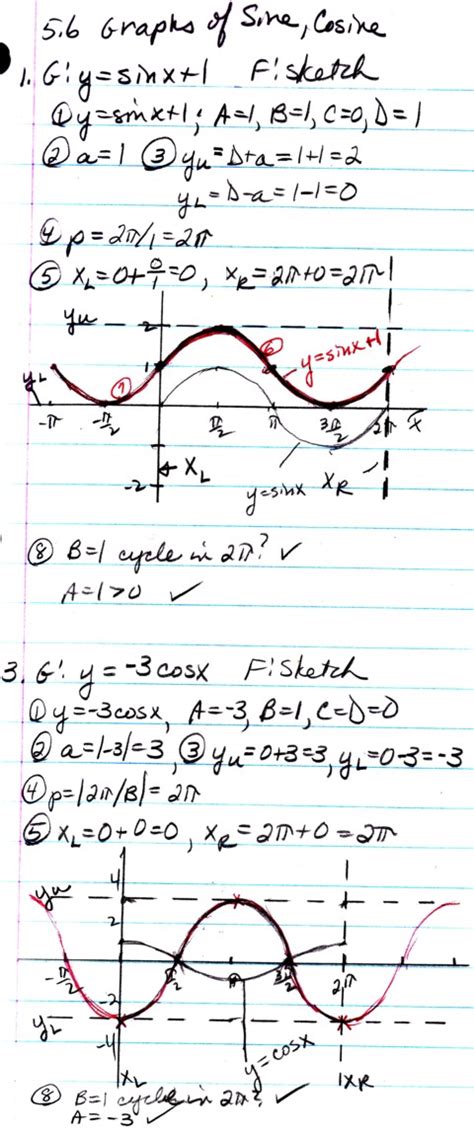 5.6 Graphs of Sine, Cosine
1. G: y=sinx+1 F: sketch
① y=sinx+1; A=1, B=1, C=0, D=1
② a=1 ③ yu=D+a=1+1=2
yL=D-a=1-1=0
④ p=2π/1=2π
⑤ XL=0+0/1=0, XR=2π+0=2π
yu 2
⑥ y=sinx+1
yL ⑦ 1
-π -π/2 π/2 π 3π/2 2π x
XL
-2 y=sinx XR
⑧ B=1 cycle in 2π? ✓
A=1>0 ✓
3. G: y=-3cosx F: Sketch
① y=-3cosx, A=-3, B=1, C=D=0
② a=|-3|=3, ③ yu=0+3=3, yL=0-3=-3
④ p=|2π/B|=2π
⑤ XL=0+0=0, XR=2π+0=2π
4
yu
2
-π/2 π/2 π 3π/2 2π
-2
yL
-4
y=cosx
XL XR
⑧ B=1 cycle in 2π? ✓
A=-3 ✓